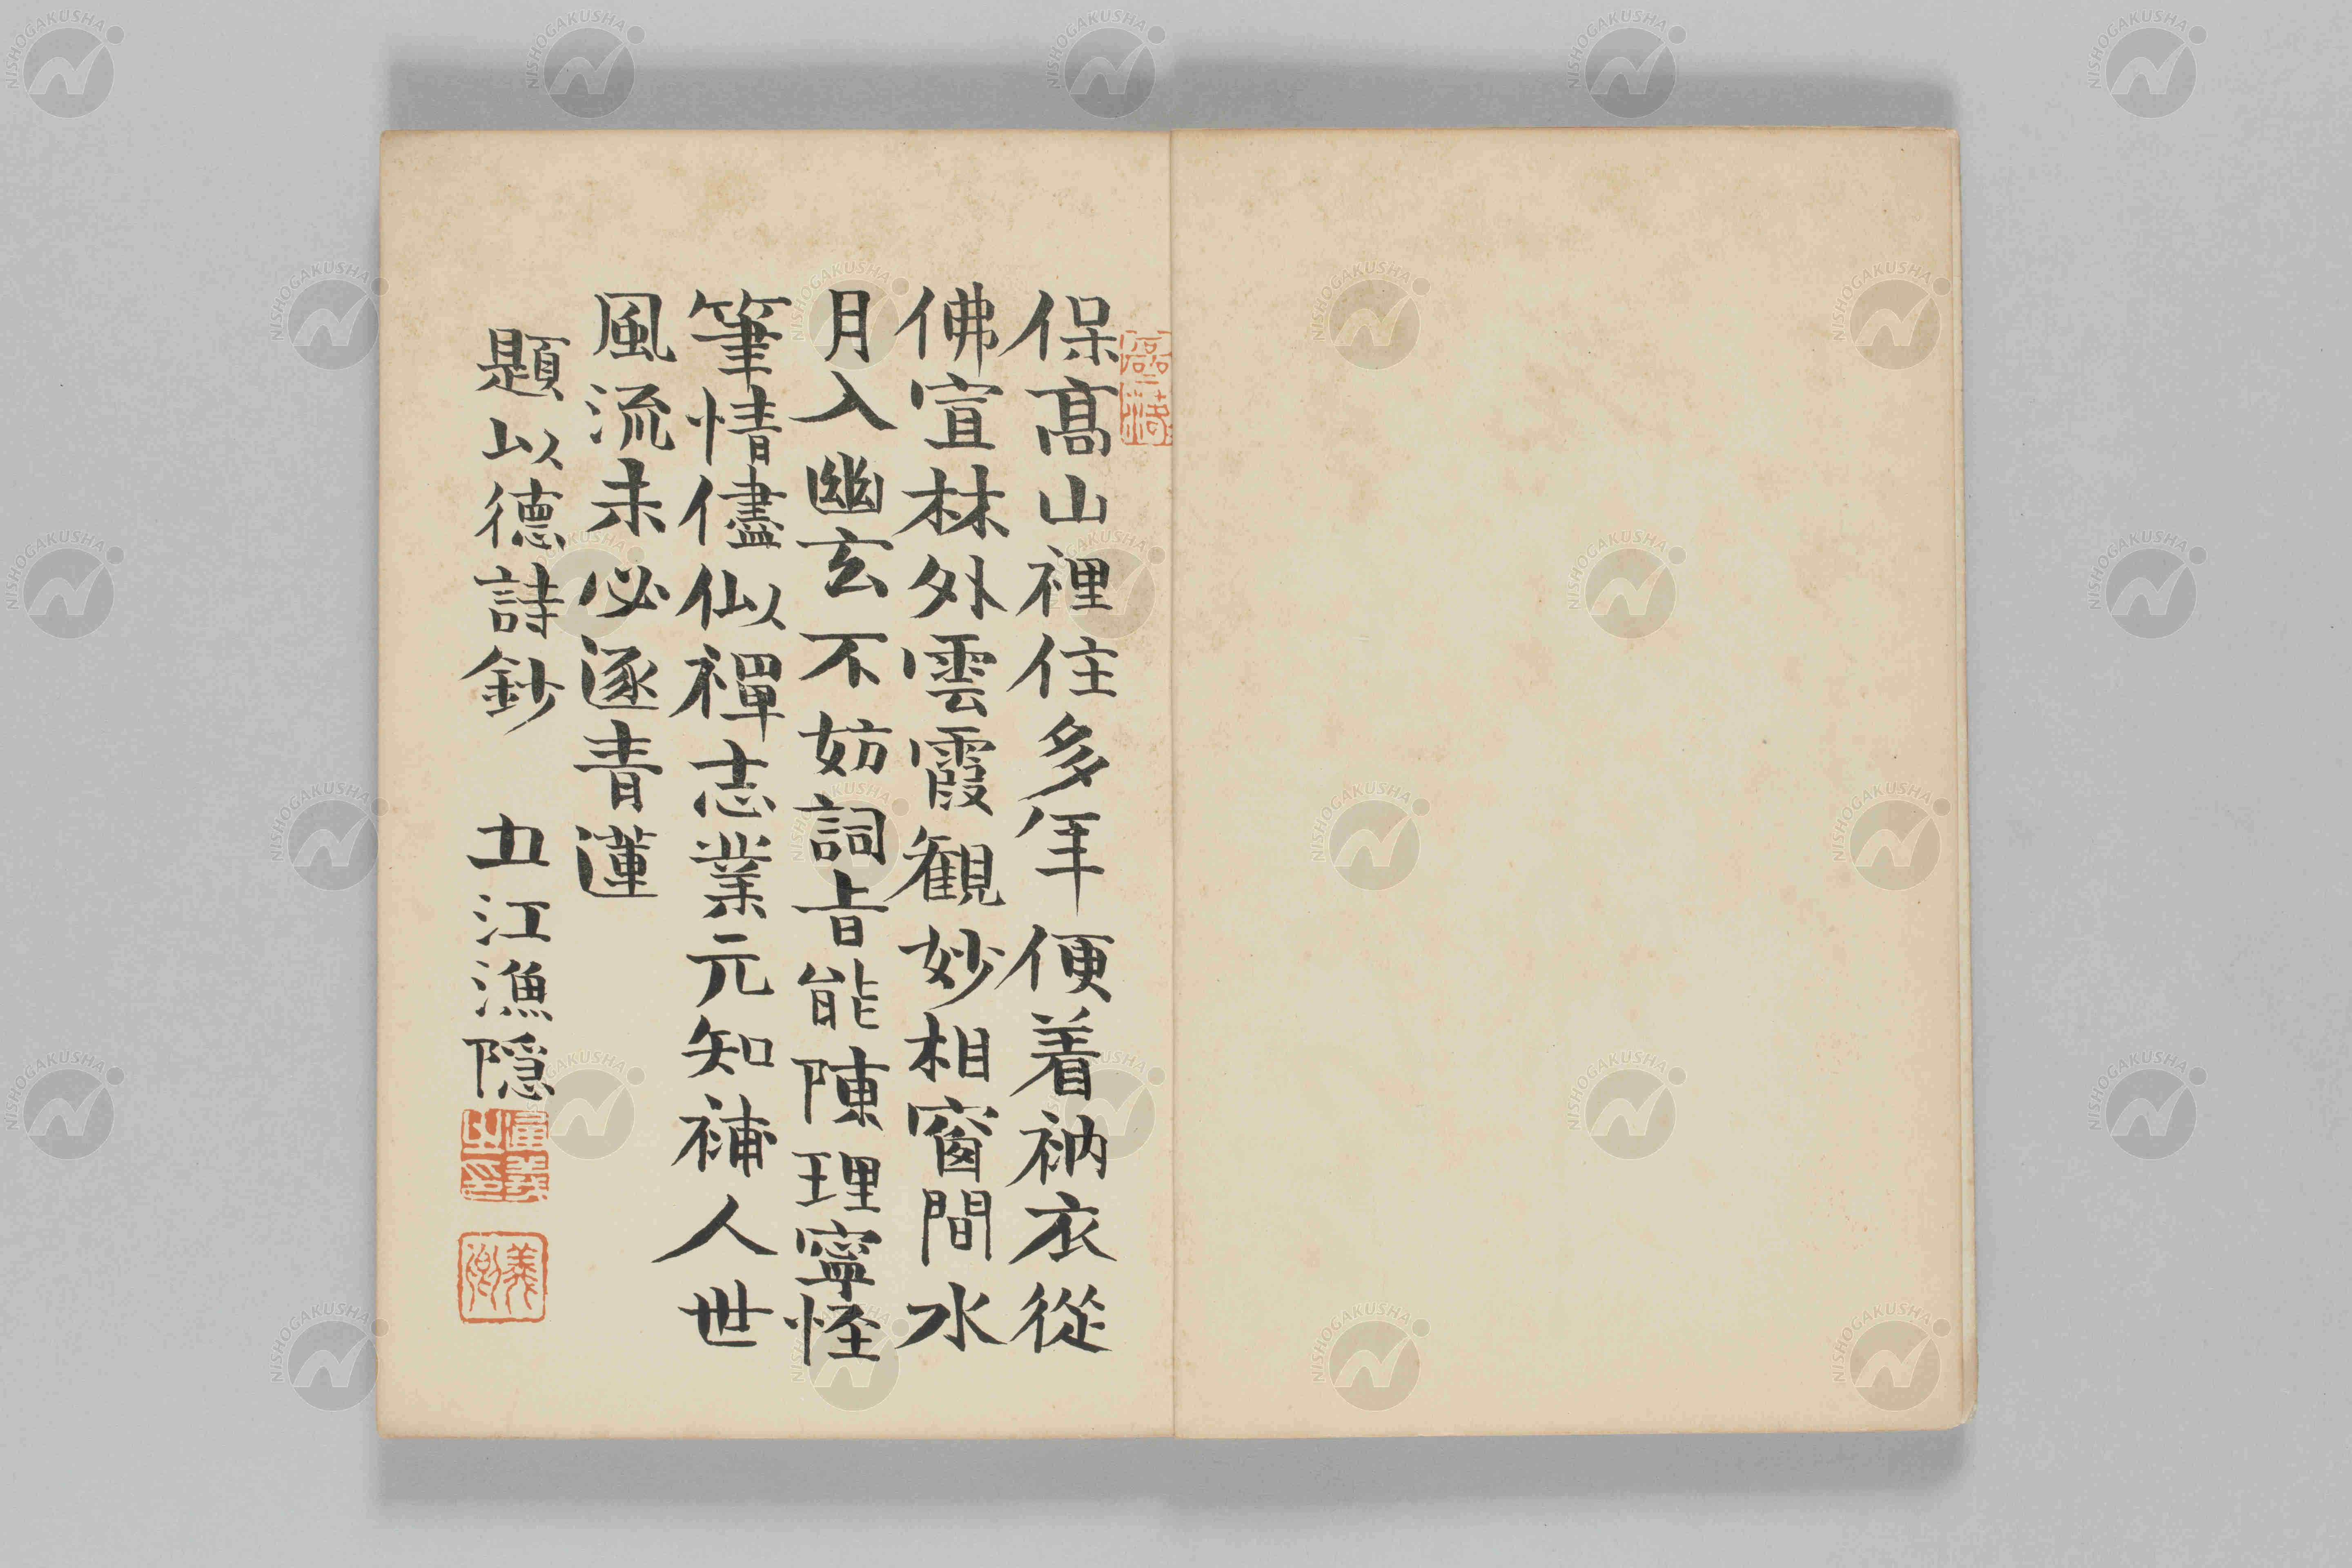 保髙山裡住多年便着衲衣從
佛宣林外雲霞観妙相窗間水
月入幽玄不妨詞㫖能陳理寧怪
筆情儘似禪志業元知補人世
風流未必逐青蓮
題以德詩鈔 江漁隠
NISHOGAKUSHA